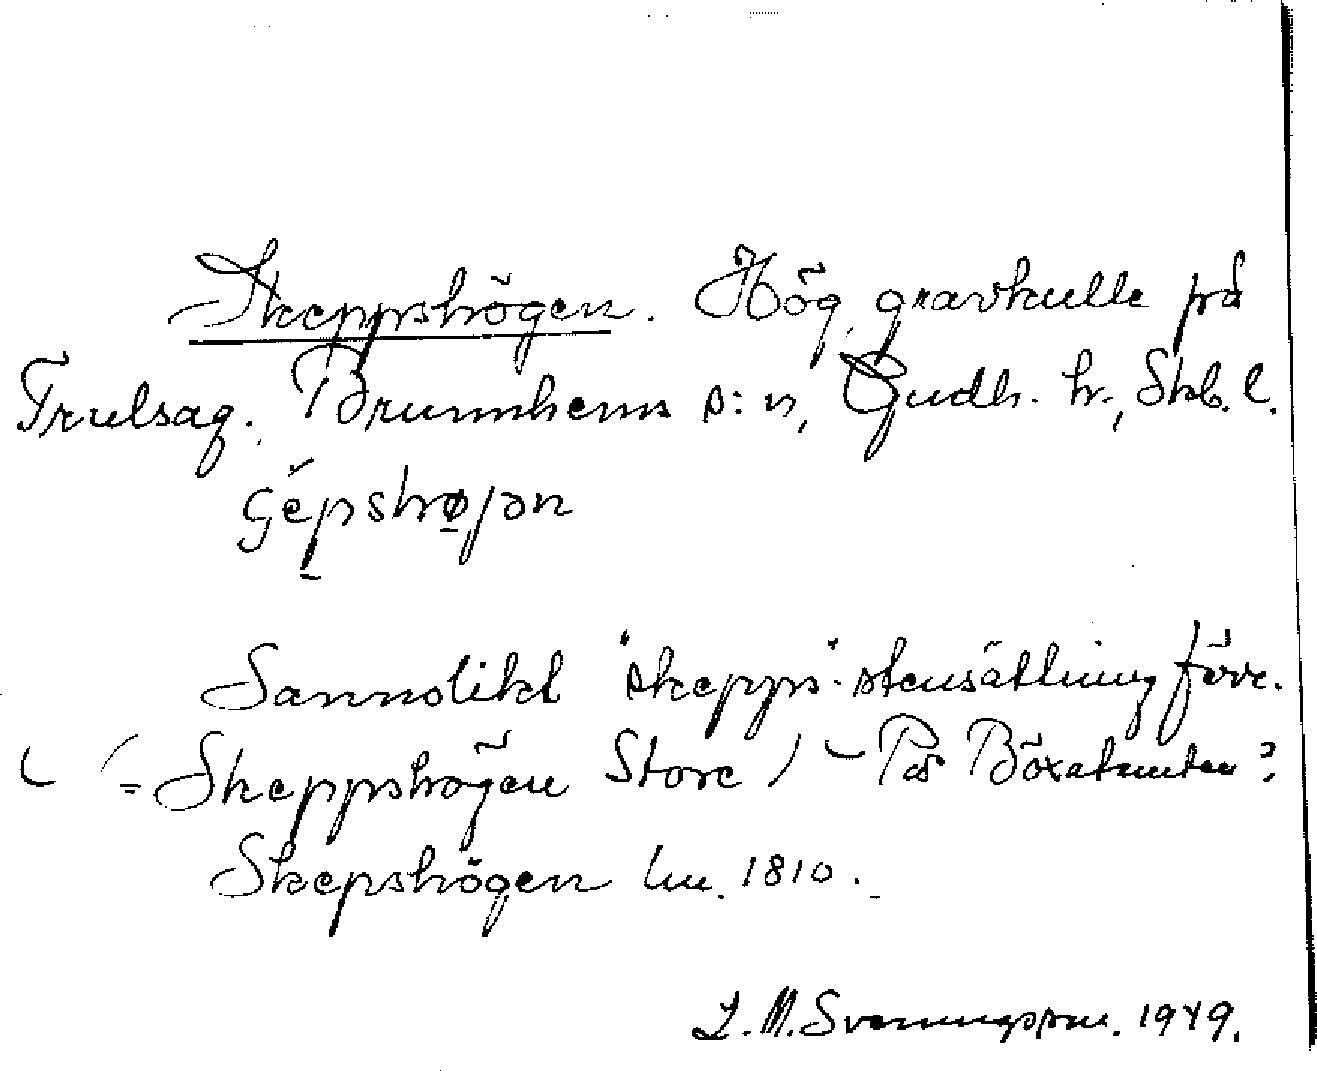 Skeppshögen. Hög, gravkulle på
Trulsag. Brunnhems s:n, Gudh. hr., Skb. l.
Sannolikt "skepps"-stensättning förr.
(= Skeppshögen Store) På
Skepshögen lm. 1810.
L. M. Svenungsson. 1949.